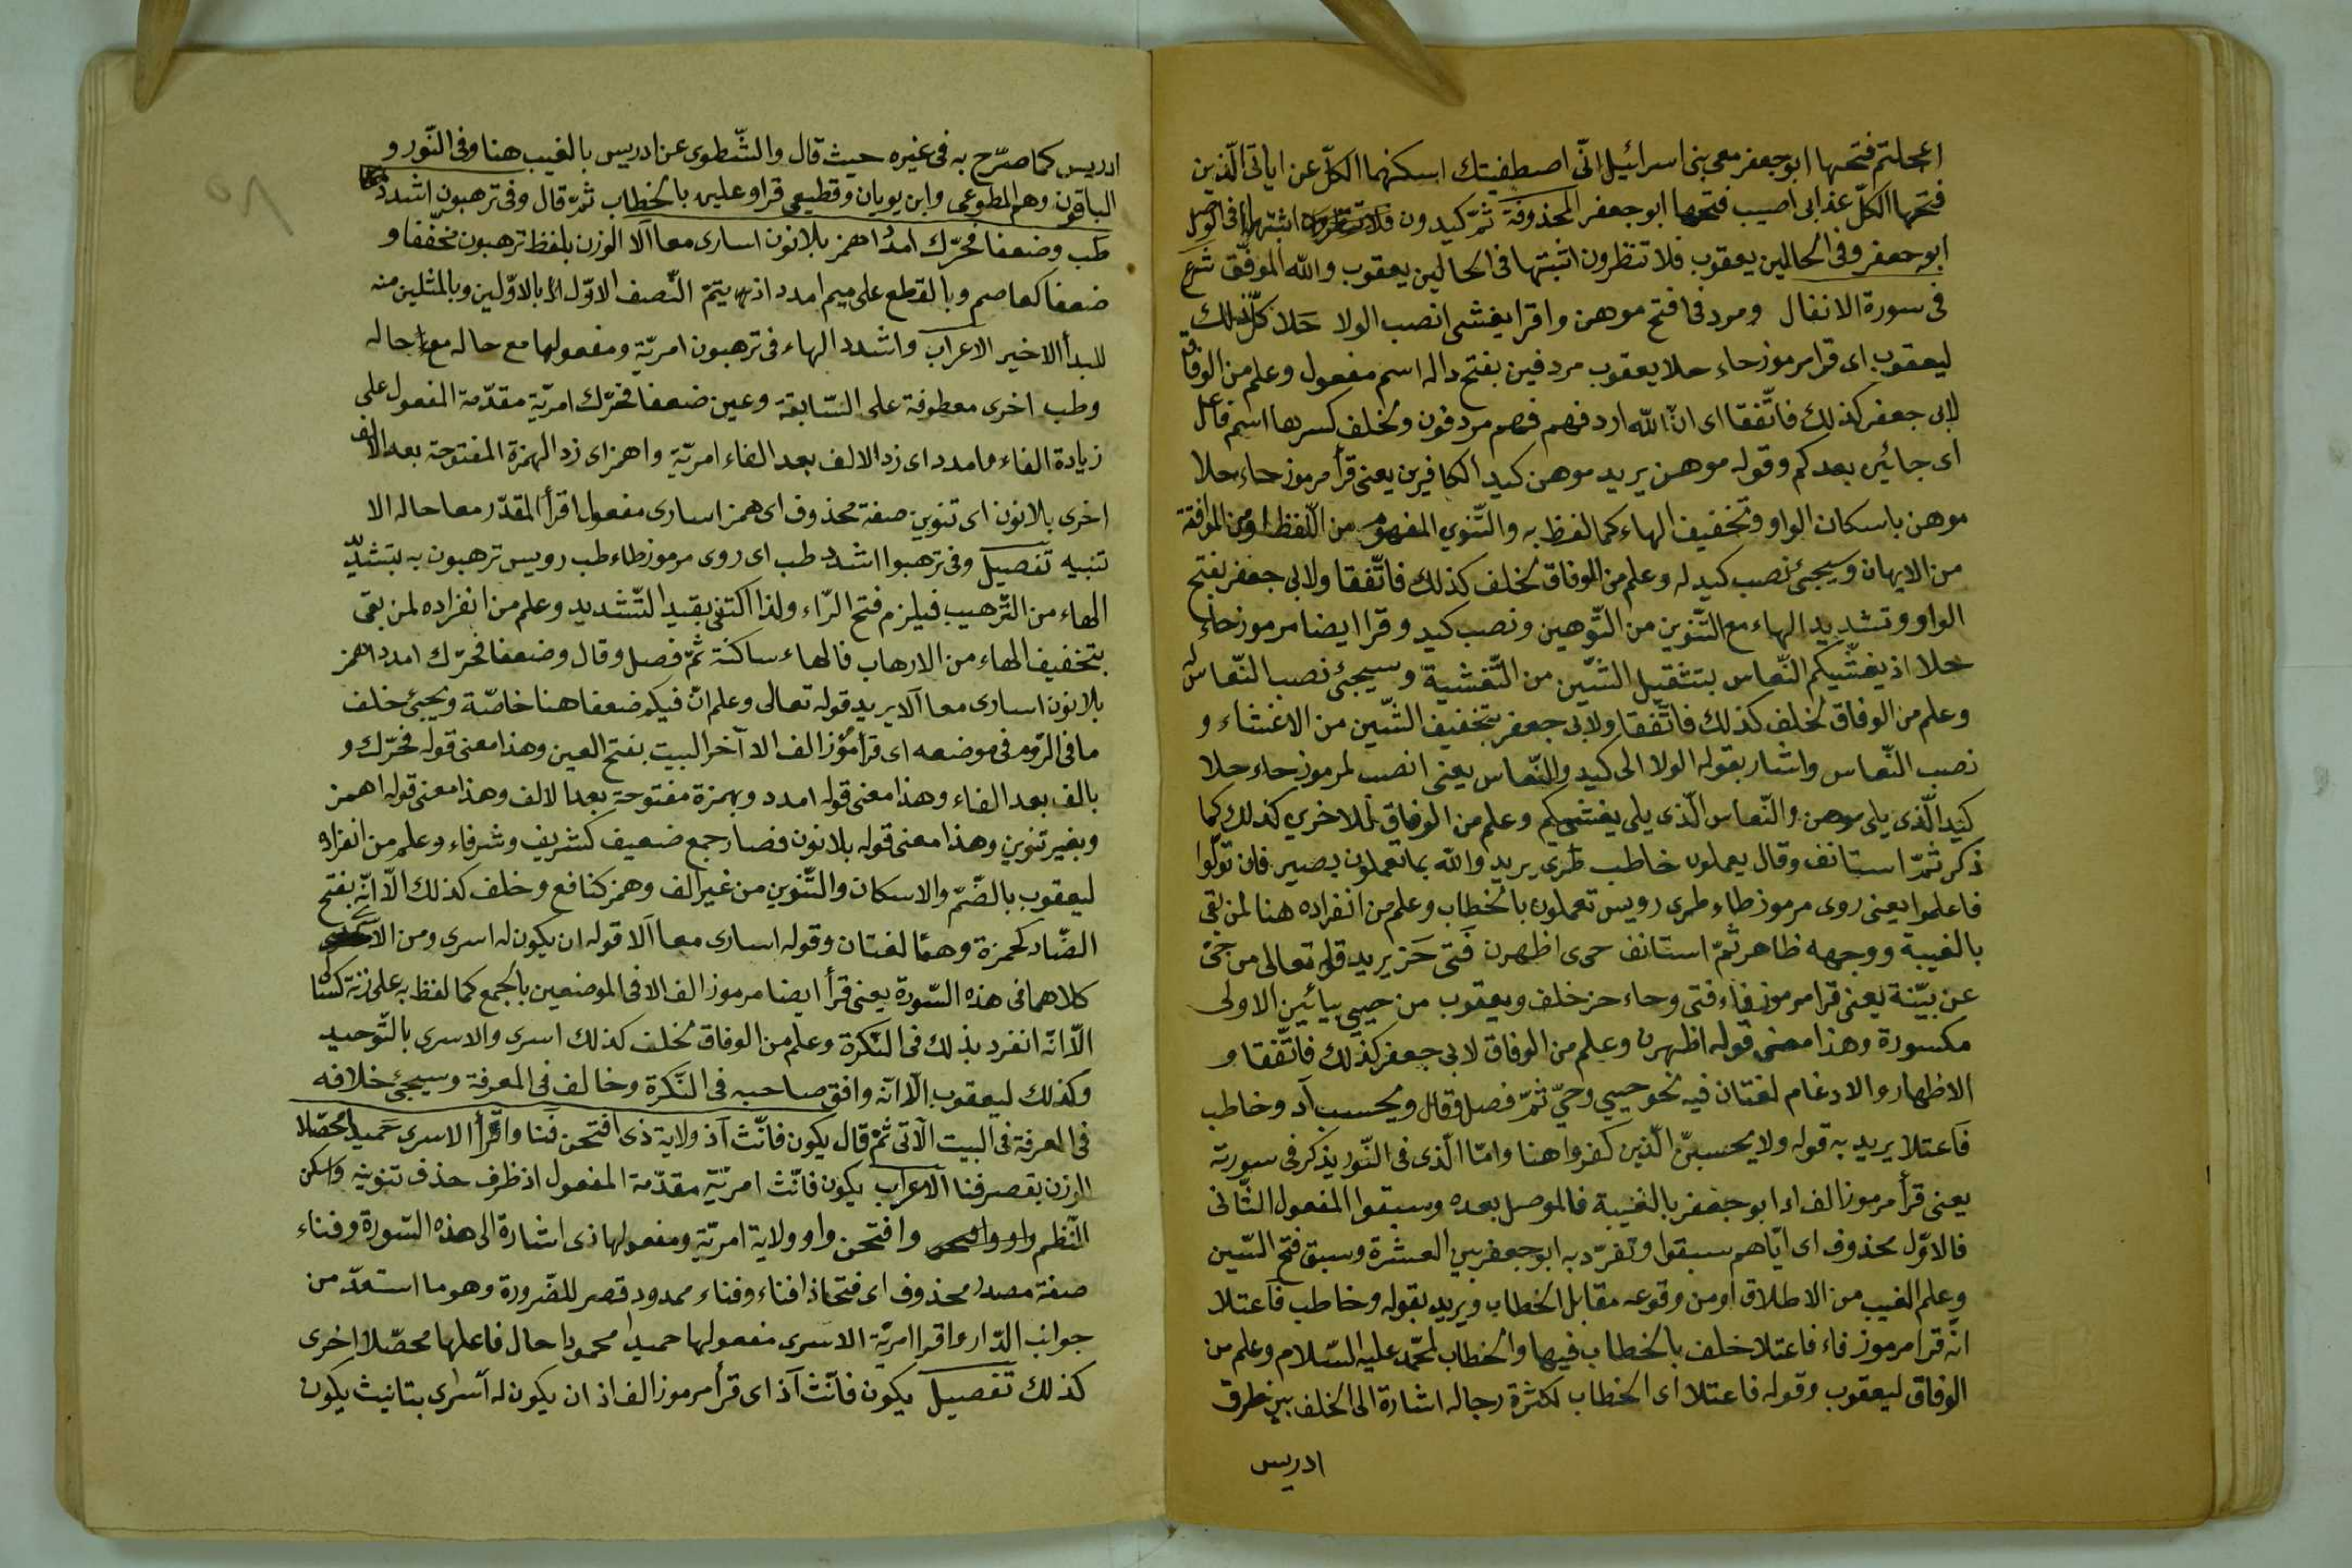 اعجلتم فتحها ابو جعفر معى بنى اسرائيل انّى اصطفيتك اسكنهما الكلّ عن اياتى الّذين
فتحها الكلّ عذابى اصيب فتحها ابو جعفر المحذوفة ثمّ كيدون فلا اثبتها فى الوصل
ابو جعفر وفى الحالين يعقوب فلا تنظرون اثبتها فى الحالين يعقوب والله الموفّق شرع
فى سورة الانفال ومردفى افتح موهن واقرا يغشى انصب الولا حَلا كلّ ذلك
ليعقوب اى قرا مرموز حاء حلا يعقوب مردفين بفتح داله اسم مفعول وعلم من الوفاق
لابى جعفر كذلك فاتّفقا اى انّ الله اردفهم فهم مردفون ولخلف كسرها اسم فاعل
اى جائين بعدكم وقوله موهن يريد موهن كيد الكافرين يعنى قرأ مرموز حاء حلا
موهن باسكان الواو وتخفيف الهاء كما لفظ به والتّنوين المفهوم من اللّفظ او من الموافقة
من الايهان وسيجئ نصب كيد له وعلم من الوفاق لخلف كذلك فاتّفقا ولابى جعفر بفتح
الواو وتشديد الهاء مع التّنوين من التّوهين ونصب كيد وقرا ايضا مرموز حاء
حلا اذ يغشّيكم النّعاس بتثقيل الشّين من التّغشية وسيجئ نصب النّعاس له
وعلم من الوفاق لخلف كذلك فاتّفقا ولابى جعفر بتخفيف الشّين من الاغشاء و
نصب النّعاس واشار بقوله الولا الى كيد والنّعاس يعنى انصب لمرموز حاء حلا
كيد الّذى يلى موهن والنّعاس الّذى يلى يغشيكم وعلم من الوفاق للاخرين كذلك كما
ذكر ثمّ استانف وقال يعملون خاطب طرى يريد والله بما تعملون بصير فان تولّوا
فاعلموا يعنى روى مرموز طاء طرى رويس تعملون بالخطاب وعلم من انفراده هنا لمن بقى
بالغيبة ووجهه ظاهر ثمّ استانف حى اظهرن فَتى حَز يريد قوله تعالى من حىّ
عن بيّنة يعنى قرا مرموز فاء فتى وحاء حز خلف ويعقوب من حيى بيائين الاولى
مكسورة وهذا معنى قوله اظهرن وعلم من الوفاق لابى جعفر كذلك فاتّفقا و
الاظهار والادغام لغتان فيه نحو حيى وحىّ ثمّ فصل وقال ويحسب اُد وخاطب
فاعتلا يريد به قوله ولا يحسبنّ الّذين كفروا هنا وامّا الّذى فى النّور يذكر فى سورته
يعنى قرأ مرموز الف اد ابو جعفر بالغيبة فالموصل بعده وسبقوا المفعول الثّانى
فالاوّل محذوف اى ايّاهم سبقوا وتفرّد به ابو جعفر بين العشرة وسبق فتح السّين
وعلم الغيب من الاطلاق او من وقوعه مقابل الخطاب ويريد بقوله وخاطب فاعتلا
انّه قرا مرموز فاء فاعتلا خلف بالخطاب فيها والخطاب لمحمّد عليه السّلام وعلم من
الوفاق ليعقوب وقوله فاعتلا اى الخطاب لكثرة رجاله اشارة الى الخلف بين طرق
ادريس
ادريس كما صرّح به فى غيره حيث قال والشّطوى عن ادريس بالغيب هنا وفى النّور و
الباقون وهم المطوعى وابن بويان وقطيعى قراوا عليه بالخطاب ثمّ قال وفى ترهبون اشدد
طب وضعفا فحرّك امدُد اهمز بلا نون اسارى معا اَلا الوزن بلفظ ترهبون مخفّفا و
ضعفا كعاصم وبالقطع على ميم امدد اذ به يتمّ النّصف الاوّل بالاوّلين وبالمثلين منه
للبدأ الاخير الاعراب واشدد الهاء فى ترهبون امريّة ومفعولها مع حاله
وطب اخرى معطوفة على السّابقة وعين ضعفا فحرّك امريّة مقدّمة المفعول على
زيادة الفاء وامدد اى زد الالف بعد الفاء امريّة واهمز اى زد الهمزة المفتوحة بعد الالف
اخرى بلا نون اى تنوين صفة محذوف اى همز اسارى مفعول اقرأ المقدّر معا حاله الا
تنبيه تفصيل وفى ترهبوا اشدد طب اى روى مرموز طاء طب رويس ترهبون به بتشديد
الهاء من التّرهيب فيلزم فتح الرّاء ولذا اكتفى بقيد التّشديد وعلم من انفراده لمن بقى
بتخفيف الهاء من الارهاب فالهاء ساكنة ثمّ فصل وقال وضعفا فحرّك امدد اهمز
بلا نون اسارى معا اَلا يريد قوله تعالى وعلم انّ فيكم ضعفا هنا خاصّة ويجئ خلف
ما فى الرّوم فى موضعه اى قرأ مرموز الف الا آخر البيت بفتح العين وهذا معنى قوله فحرّك و
بالف بعد الفاء وهذا معنى قوله امدد وبهمزة مفتوحة بعد الالف وهذا معنى قوله اهمز
وبغير تنوين وهذا معنى قوله بلا نون فصار جمع ضعيف كشريف وشرفاء وعلم من انفراده
ليعقوب بالضّمّ والاسكان والتّنوين من غير الف وهمز كنافع وخلف كذلك الّا انّه بفتح
الضّاد كحمزة وهما لغتان وقوله اسارى معا اَلا قوله ان يكون له اسرى ومن الاسرى
كلاهما فى هذه السّورة يعنى قرأ ايضا مرموز الف الا فى الموضعين بالجمع كما لفظ به على زنة كسالى
الّا انّه انفرد بذلك فى النّكرة وعلم من الوفاق لخلف كذلك اسرى والاسرى بالتّوحيد
وكذلك ليعقوب الّا انّه وافق صاحبه فى النّكرة وخالف فى المعرفة وسيجئ خلافه
فى المعرفة فى البيت الآتى ثمّ قال يكون فانّث اذ ولاية ذى افتحن فنا واقرأ الاسرى حَميدا محصّلا
الوزن بقصر فنا الاعراب يكون فانّث امريّة مقدّمة المفعول اذ ظرف حذف تنوينه واسكن
النّظم واو وافتحن وافتحن واو ولاية امريّة ومفعولها ذى اشارة الى هذه السّورة وفناء
صفة مصدر محذوف اى فتحا ذا فناء وفناء ممدود قصر للضّرورة وهو ما استعدّ من
جوانب الدّار واقرا امريّة الاسرى مفعولها حميدا محمودا حال فاعلها محصّلا اخرى
كذلك تفصيل يكون فانّث آذ اى قرأ مرموز الف اذ ان يكون له أسرى بتانيث يكون